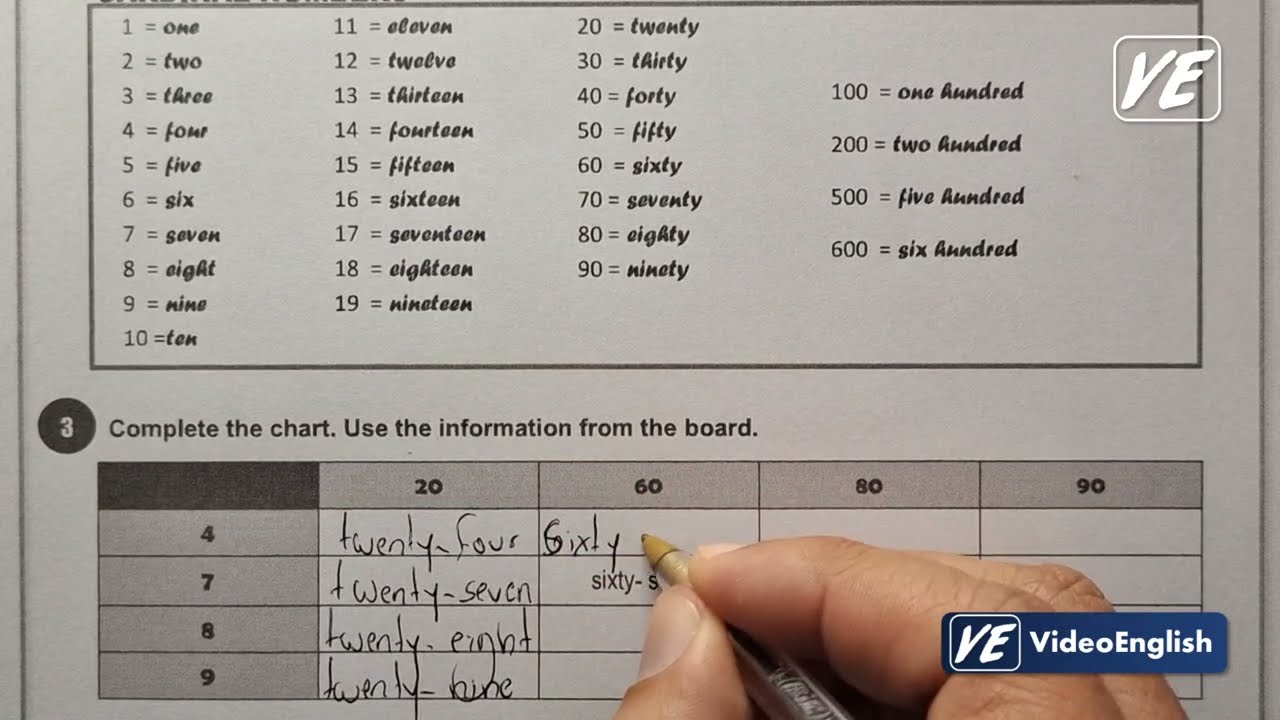 1 = one 11 = eleven 20 = twenty
2 = two 12 = twelve 30 = thirty
3 = three 13 = thirteen 40 = forty 100 = one hundred
4 = four 14 = fourteen 50 = fifty
5 = five 15 = fifteen 60 = sixty 200 = two hundred
6 = six 16 = sixteen 70 = seventy 500 = five hundred
7 = seven 17 = seventeen 80 = eighty
8 = eight 18 = eighteen 90 = ninety 600 = six hundred
9 = nine 19 = nineteen
10 =ten
VE
3 Complete the chart. Use the information from the board.
20 60 80 90
4 twenty-four Sixty
7 twenty-seven sixty- s
8 twenty-eight
9 twenty-nine
VE VideoEnglish